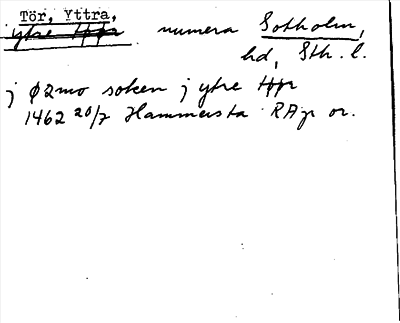 Tör, Yttra,
ytre numera Sotholm,
hd, Sth. l.
j Ø2mo soken j ytre
1462 20/7 Hammersta RAp or.